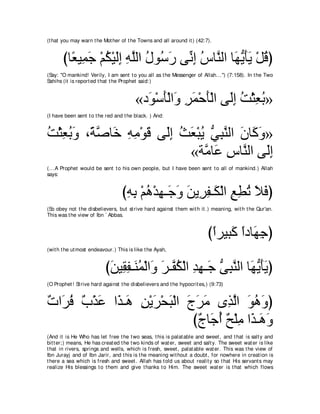 (that you may warn the Mother of the Towns and all around it) (42:7).
(قُلْ يَأَيُّهَا النَّاسُ إِنِّى رَسُولُ اللَّهِ إِلَيْكُمْ جَمِيعًا)
(Say: "O mankind! Verily, I am sent to you all as the Messenger of Allah...'') (7:158). In the Two
Sahihs (it is reported that the Prophet said:)
«بُعِثْتُ إِلَى الْأَحْمَرِ وَالْأَسْوَد»
(I have been sent to the red and the black. ) And:
«وَكَانَ النَّبِيُّ يُبْعَثُ إِلَى قَوْمِهِ خَاصَّةً، وَبُعِثْتُ
إِلَى النَّاسِ عَامَّة»
(...A Prophet would be sent to his own people, but I have been sent to all of mankind.) Allah
says:
(فَلاَ تُطِعِ الْكَـفِرِينَ وَجَـهِدْهُمْ بِهِ)
(So obey not the disbelievers, but strive hard against them with it.) meaning, with the Qur'an.
This was the view of Ibn `Abbas.
(جِهَاداً كَبيراً)
(with the utmost endeavour.) This is like the Ayah,
(يَأَيُّهَا النَّبِىُّ جَـهِدِ الْكُفَّـرَ وَالْمُنَـفِقِينَ)
(O Prophet! Strive hard against the disbelievers and the hypocrites,) (9:73)
(وَهُوَ الَّذِى مَرَجَ الْبَحْرَيْنِ هَـذَا عَذْبٌ فُرَاتٌ
وَهَـذَا مِلْحٌ أُجَاجٌ)
(And it is He Who has let free the two seas, this is palatable and sweet, and that is salty and
bitter;) means, He has created the two kinds of water, sweet and salty. The sweet water is like
that in rivers, springs and wells, which is fresh, sweet, palatable water. This was the view of
Ibn Jurayj and of Ibn Jarir, and this is the meaning without a doubt, for nowhere in creation is
there a sea which is fresh and sweet. Allah has told us about reality so that His servants may
realize His blessings to them and give thanks to Him. The sweet water is that which flows